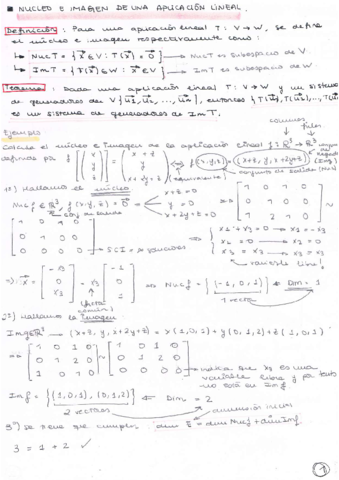 ■ NUCLEO E IMAGEN DE UNA APLICACIÓN LINEAL.
Definición: Para una aplicación lineal T: V→W, se define
el núcleo e imagen respectivamente como:
↳ Nuc T = {x⃗ ∈ V : T(x⃗) = 0⃗} → Nuc T es subespacio de V.
↳ Im T = {T(x⃗) ∈ W : x⃗ ∈ V} → Im T es subespacio de W
Teorema: Dada una aplicación lineal T: V→W y un sistema
de generadores de V {u⃗1, u⃗2, ..., u⃗n}, entonces {T(u⃗1), T(u⃗2), ..., T(u⃗n)}
es un sistema de generadores de Im T.
columnas filas
Ejemplo
Calcula el núcleo e imagen de la aplicación lineal f: ℝ³ → ℝ³
definida por f(x y z) = (x + z y x + 2y + z) ⇔ f(x,y,z) = (x+z, y, x+2y+z) (Im f)
(equivalente) conjunto de salida
1º) Hallamos el núcleo
x + z = 0
Nuc f ∈ ℝ³, f(x,y,z) = 0⃗ = y = 0
x + 2y + z = 0
1 0 1 0
0 1 0 0
1 2 1 0
1 0 1 0
0 1 0 0
0 0 0 0
SCI = ∞ soluciones
x1 + x3 = 0 → x1 = -x3
x2 = 0 → x2 = 0
x3 = x3 → x3 = x3
variable libre
⇒ x⃗ = -x3 0 x3 = x3 -1 0 1 ⇒ Nuc f = {(-1, 0, 1)} ← Dim = 1
(factor común) 1 vector
2º) Hallamos la imagen
Im f ∈ ℝ³ → (x+z, y, x+2y+z) = x(1,0,1) + y(0,1,2) + z(1,0,1)
1 0 1 0
0 1 2 0
1 0 1 0
~
1 0 1 0
0 1 2 0
0 0 0 0
indica que x3 es una
variable libre y por tanto
no está en Im f
Im f = {(1,0,1), (0,1,2)} ← Dim = 2
2 vectores dimensión inicial
3º) Se tiene que cumplir: dim E = dim Nuc f + dim Im f
3 = 1 + 2 ✓
1